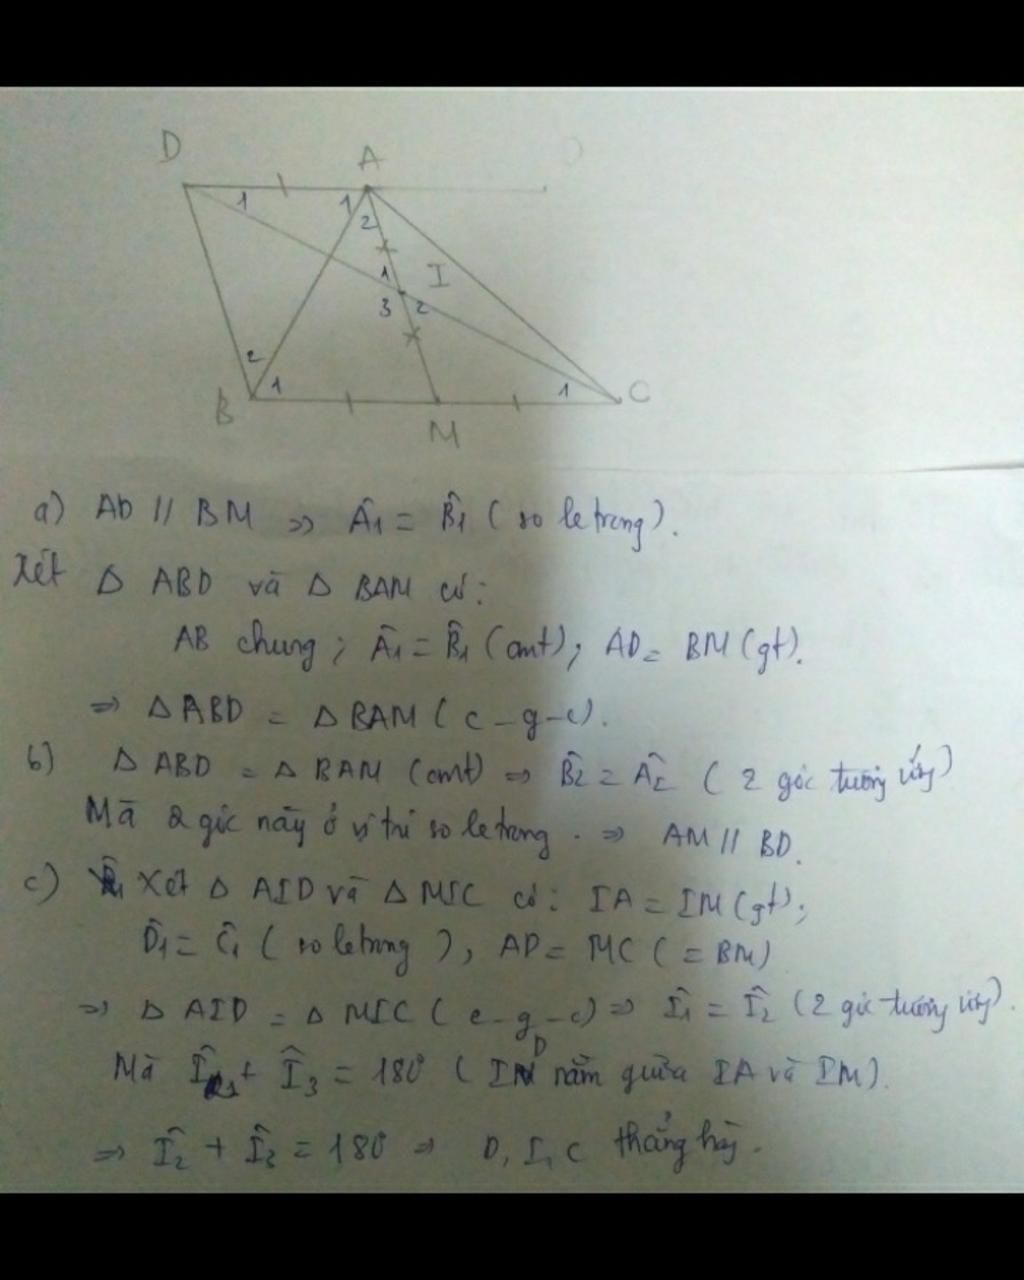 D A
1 1 2
1 I
3 2
2 1 1
B M C
a) AD // BM => Â1 = B̂1 (so le trong).
Xét Δ ABD và Δ BAM có:
AB chung; Â1 = B̂1 (cmt); AD = BM (gt).
=> Δ ABD = Δ BAM (c-g-c).
b) Δ ABD = Δ BAM (cmt) => B̂2 = Â2 (2 góc tương ứng)
Mà 2 góc này ở vị trí so le trong. => AM // BD.
c) Xét Δ AID và Δ MIC có: IA = IM (gt);
D̂1 = Ĉ1 (so le trong), AD = MC (= BM)
=> Δ AID = Δ MIC (c-g-c) => Î1 = Î2 (2 góc tương ứng).
Mà Î1 + Î3 = 180° (ID nằm giữa IA và IM).
=> Î2 + Î3 = 180 => D, I, C thẳng hàng.